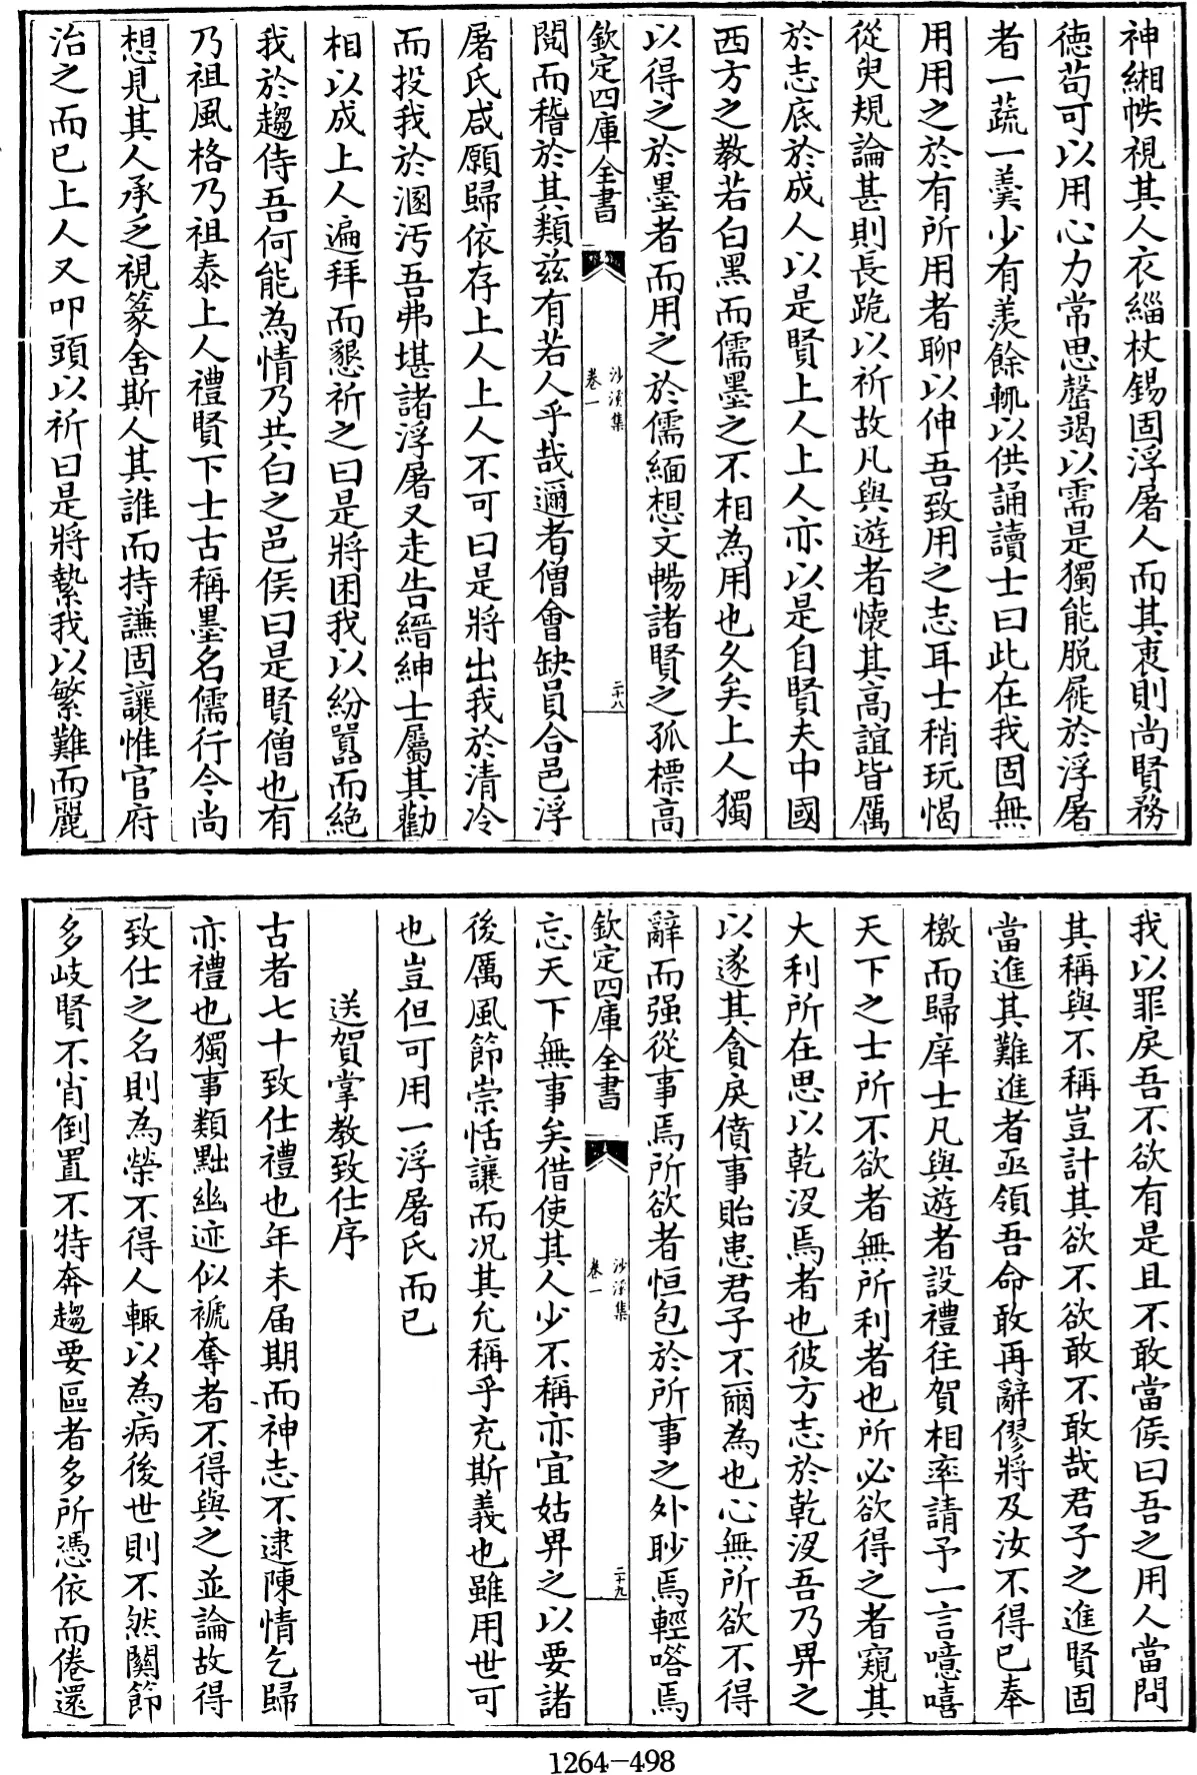 神緗帙視其人衣緇杖錫固浮屠人而其衷則尚賢務
徳茍可以用心力常思罄竭以需是獨能脱屣於浮屠
者一蔬一羮少有羨餘輒以供誦讀士曰此在我固無
用用之於有所用者聊以伸吾致用之志耳士稍玩愒
從臾規論甚則長跪以祈故凡與遊者懷其高誼皆厲
於志底於成人以是賢上人上人亦以是自賢夫中國
西方之教若白黑而儒墨之不相為用也久矣上人獨
以得之於墨者而用之於儒緬想文暢諸賢之孤標高
欽定四庫全書
沙溪集
卷一
二十八
閱而稽於其類兹有若人乎哉邇者僧會缺員合邑浮
屠氏咸願歸依存上人上人不可曰是將出我於清冷
而投我於溷汚吾弗堪諸浮屠又走告縉紳士屬其勸
相以成上人遍拜而懇祈之曰是將困我以紛囂而絶
我於趨侍吾何能為情乃共白之邑侯曰是賢僧也有
乃祖風格乃祖泰上人禮賢下士古稱墨名儒行今尚
想見其人承乏視篆舍斯人其誰而持謙固讓惟官府
治之而已上人又叩頭以祈曰是將縶我以繁難而麗
我以罪戾吾不欲有是且不敢當侯曰吾之用人當問
其稱與不稱豈計其欲不欲敢不敢哉君子之進賢固
當進其難進者亟領吾命敢再辭僇將及汝不得已奉
檄而歸庠士凡與遊者設禮往賀相率請予一言噫嘻
天下之士所不欲者無所利者也所必欲得之者窺其
大利所在思以乾没焉者也彼方志於乾没吾乃畀之
以遂其貪戾僨事貽患君子不爾為也心無所欲不得
辭而强從事焉所欲者恒包於所事之外眇焉輕嗒焉
欽定四庫全書
沙溪集
卷一
二十九
忘天下無事矣借使其人少不稱亦宜姑畀之以要諸
後厲風節崇恬讓而况其允稱乎充斯義也雖用世可
也豈但可用一浮屠氏而已
送賀掌教致仕序
古者七十致仕禮也年未届期而神志不逮陳情乞歸
亦禮也獨事類黜幽迹似褫奪者不得與之並論故得
致仕之名則為榮不得人輒以為病後世則不然關節
多岐賢不肖倒置不特奔趨要區者多所憑依而倦還
1264-498